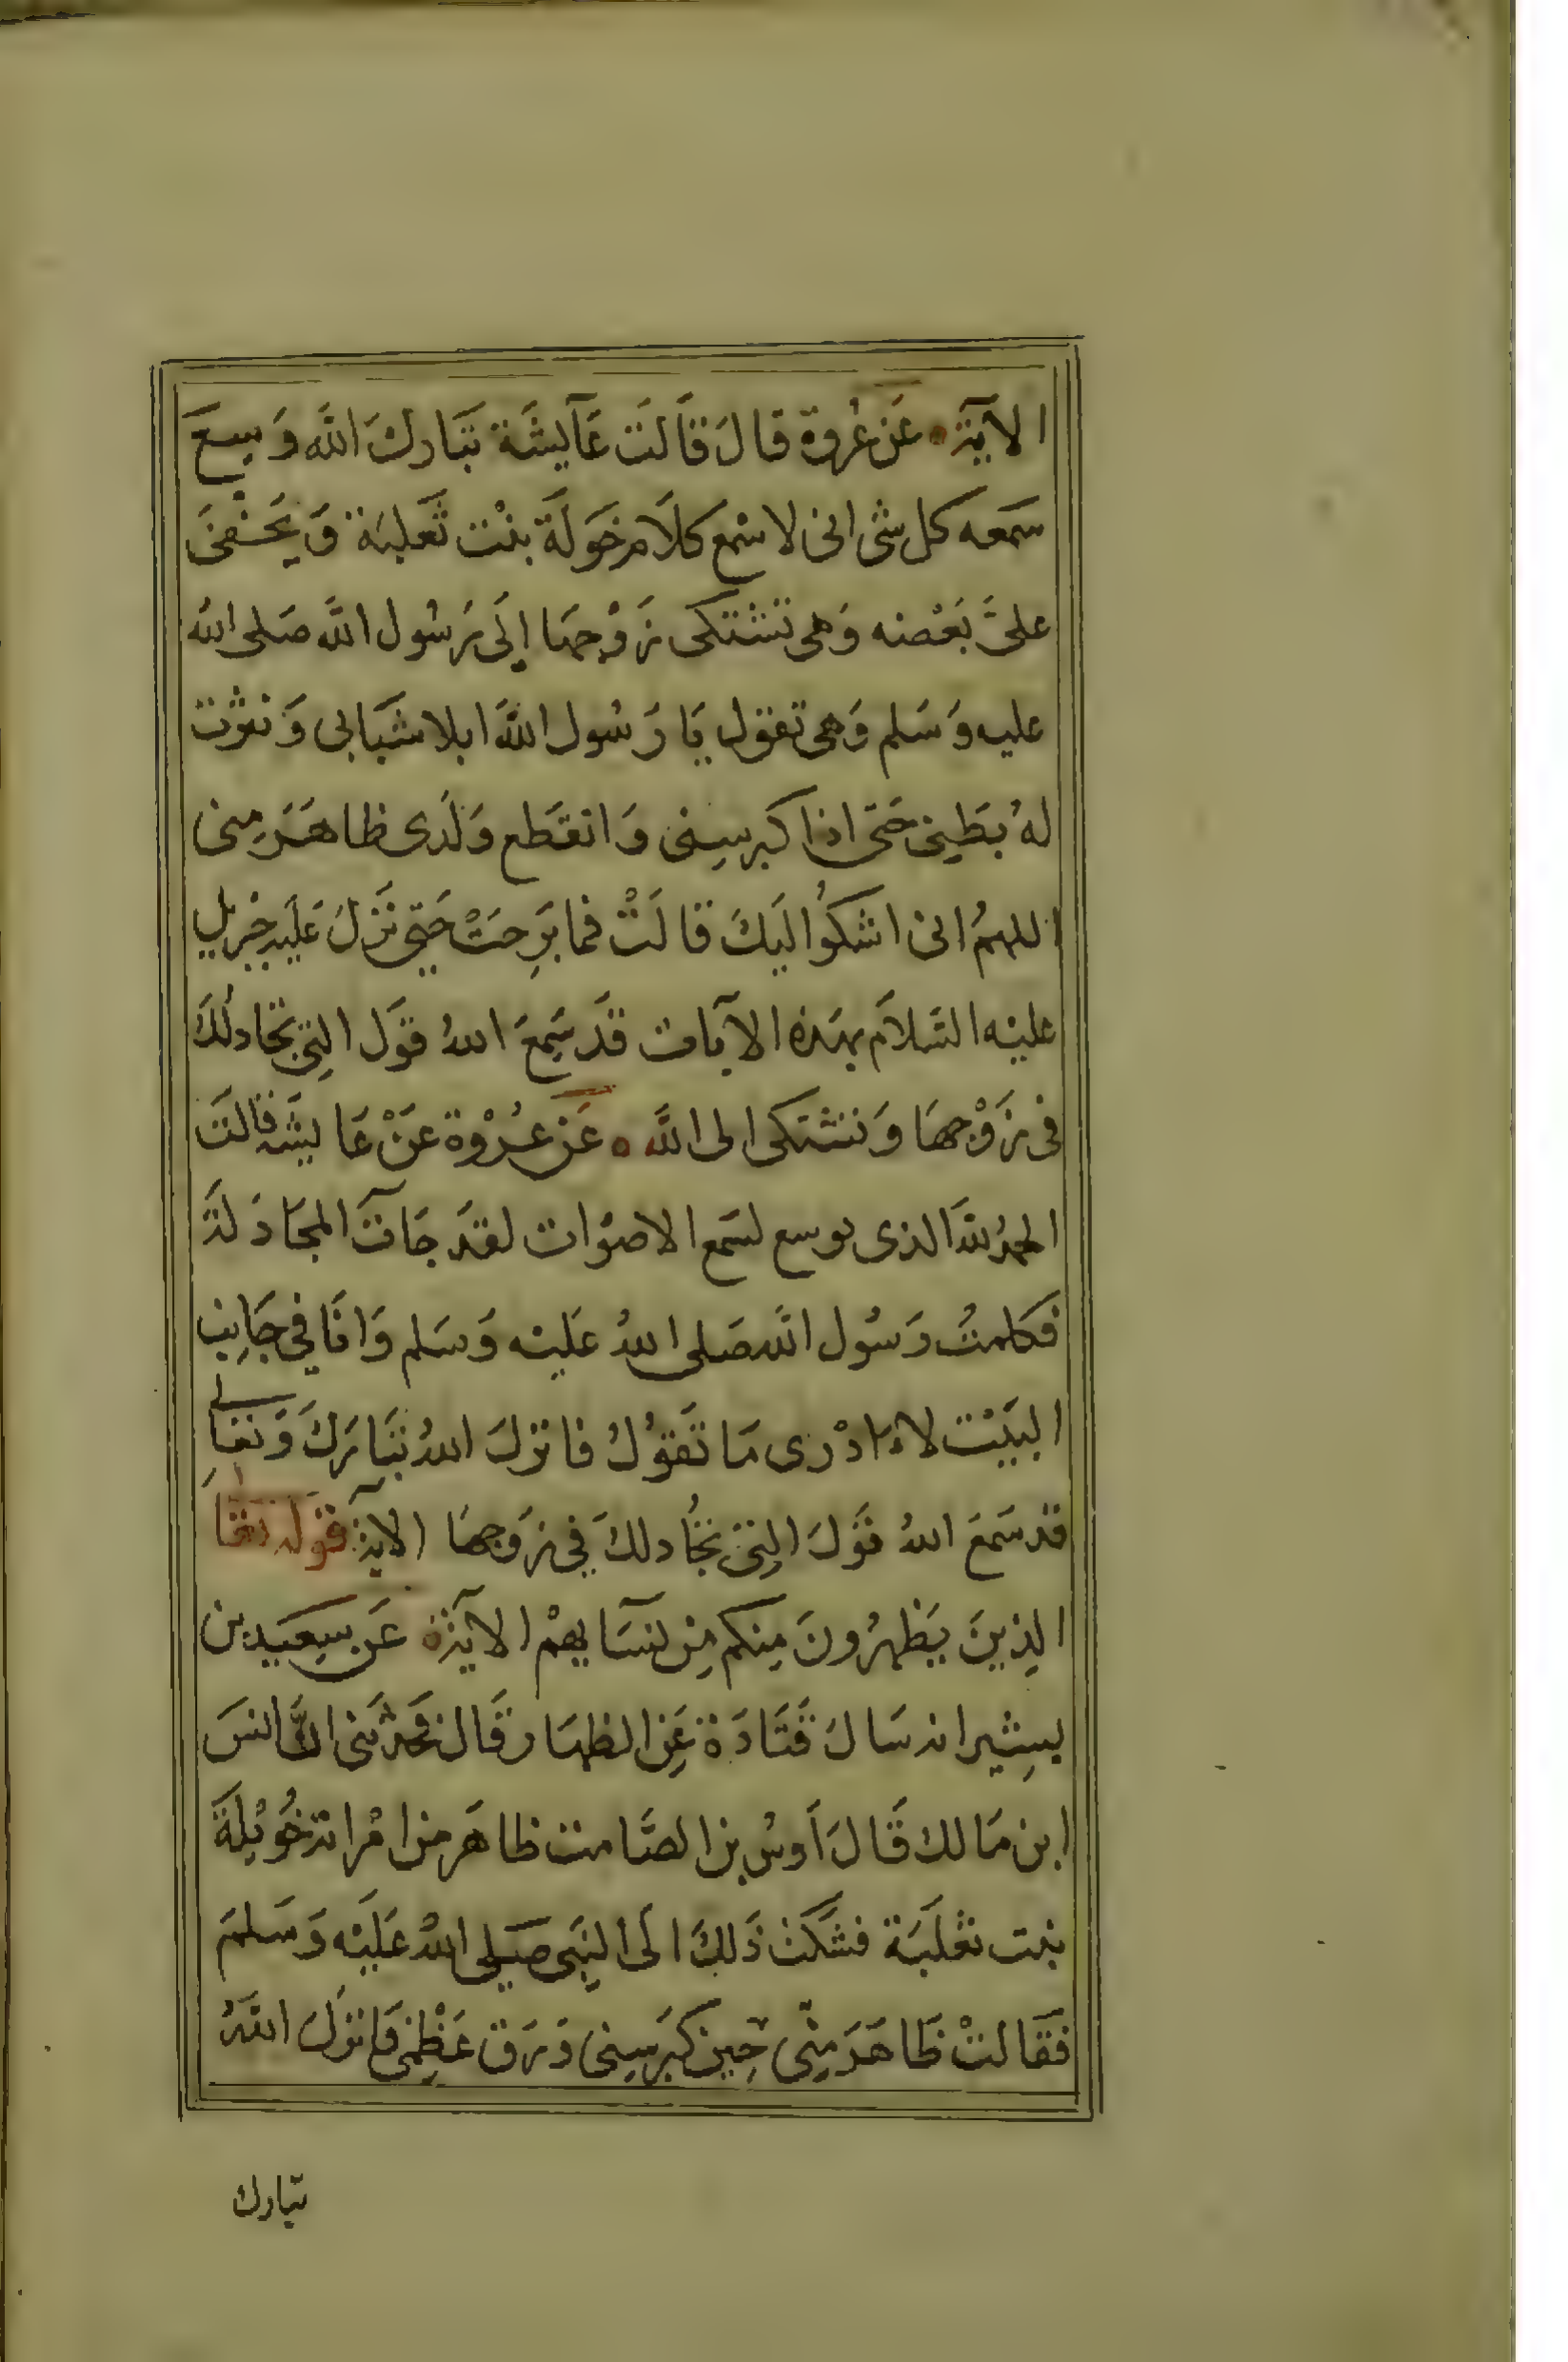 الآية عَن عُروة قالَ قَالَت عَآيشَة تَبَارك اللَّه وَسِعَ
سَمعه كل شى انى لا سْمع كلَام خَولَة بنْت ثَعَلبَة وَيَخفىَ
علىَّ بَعْضه وَهى تشتكى زَوْجهَا إلَى رَسُول اللَّه صَلى الله
عليه وَسَلم وَهى تقول يَا رَسُول اللَّه ابلا شبَابى وَنثرت
لهُ بَطنى حَتى اذا كبر سِنى وَانقَطع وَلَدى ظاهَرَ مِنى
اللهمُ انى اشكوُا لَيكَ قالَتْ فما بَرِحَتْ حَتى نَزلَ عَلَيه جبْريل
عليْه السَّلاَم بهَذه الآيات قَد سَمِعَ اللهُ قَول التِى تجَادلكَ
فى زَوْجهَا وَتشتكى الى اللَّه عَن عُرْوة عَنْ عَايشَه قالَت
الحمدُ للَّه الذى يوسع لسَمع الاصْوَات لقَد جَآت المجَادَلة
فكلمتُ رَسُول اللَّه صَلى اللهُ عَليْه وَسَلم وَانَا فِي جَانِب
البَيْت لا ادْرى مَا تَقوُلُ فانزلَ اللهُ تبَارَكَ وَتعَالى
قد سَمعَ اللهُ قوْلَ التِى تجَُادلكَ فِي زَوجهَا الآية قوَله تعَالى
الذِينَ يَظهرُونَ مِنكم مِن نسَآيهمْ الآية عَن سِعيَد بن
بشِير انه سَالَ قَتَادَة عَنِ الظهَار قَال فحَدثنى انَّ انسَ
ابن مَالك قَالَ أَوسُ بن الصَّامت ظاهَر من امْراته خُوَيْلَةَ
بنت ثعْلَبَة فشَكت ذَلكَ الَى النبَى صَلى اللهُ عَلَيْه وَسَلمَ
فَقَالتْ ظَاهَرَ مِنّى حِين كبَر سِنى وَرَق عَظِْمى فَانزلَ اللهُ
تبارك